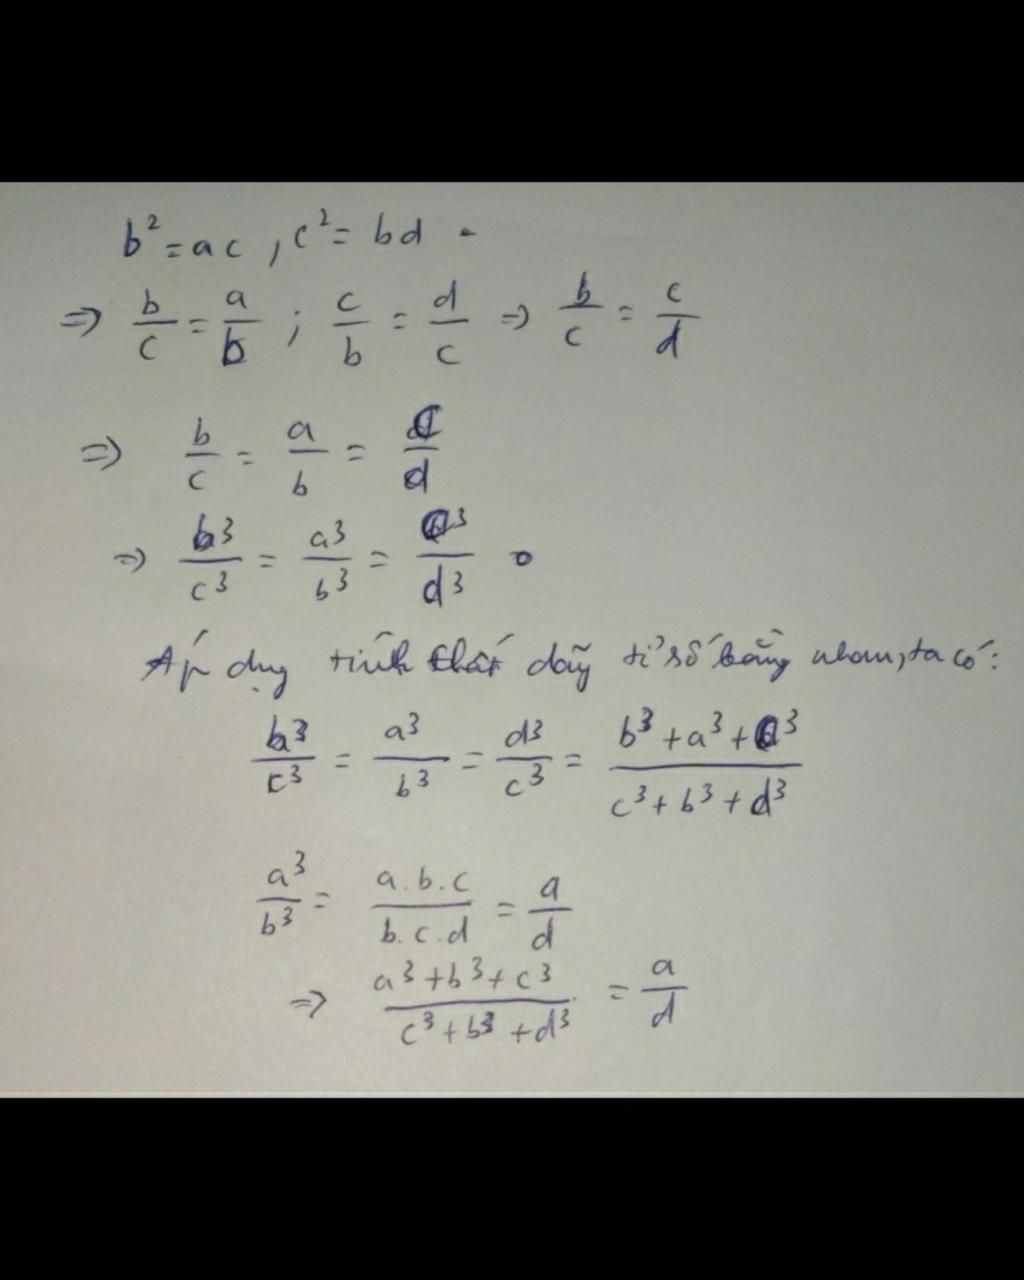 b² = ac, c² = bd.
⇒ b/c = a/b ; c/b = d/c ⇒ b/c = c/d
⇒ b/c = a/b = c/d
⇒ b³/c³ = a³/b³ = c³/d³.
Áp dụng tính chất dãy tỉ số bằng nhau, ta có:
b³/c³ = a³/b³ = d³/c³ = (b³ + a³ + c³)/(c³ + b³ + d³)
a³/b³ = (a.b.c)/(b.c.d) = a/d
⇒ (a³ + b³ + c³)/(c³ + b³ + d³) = a/d